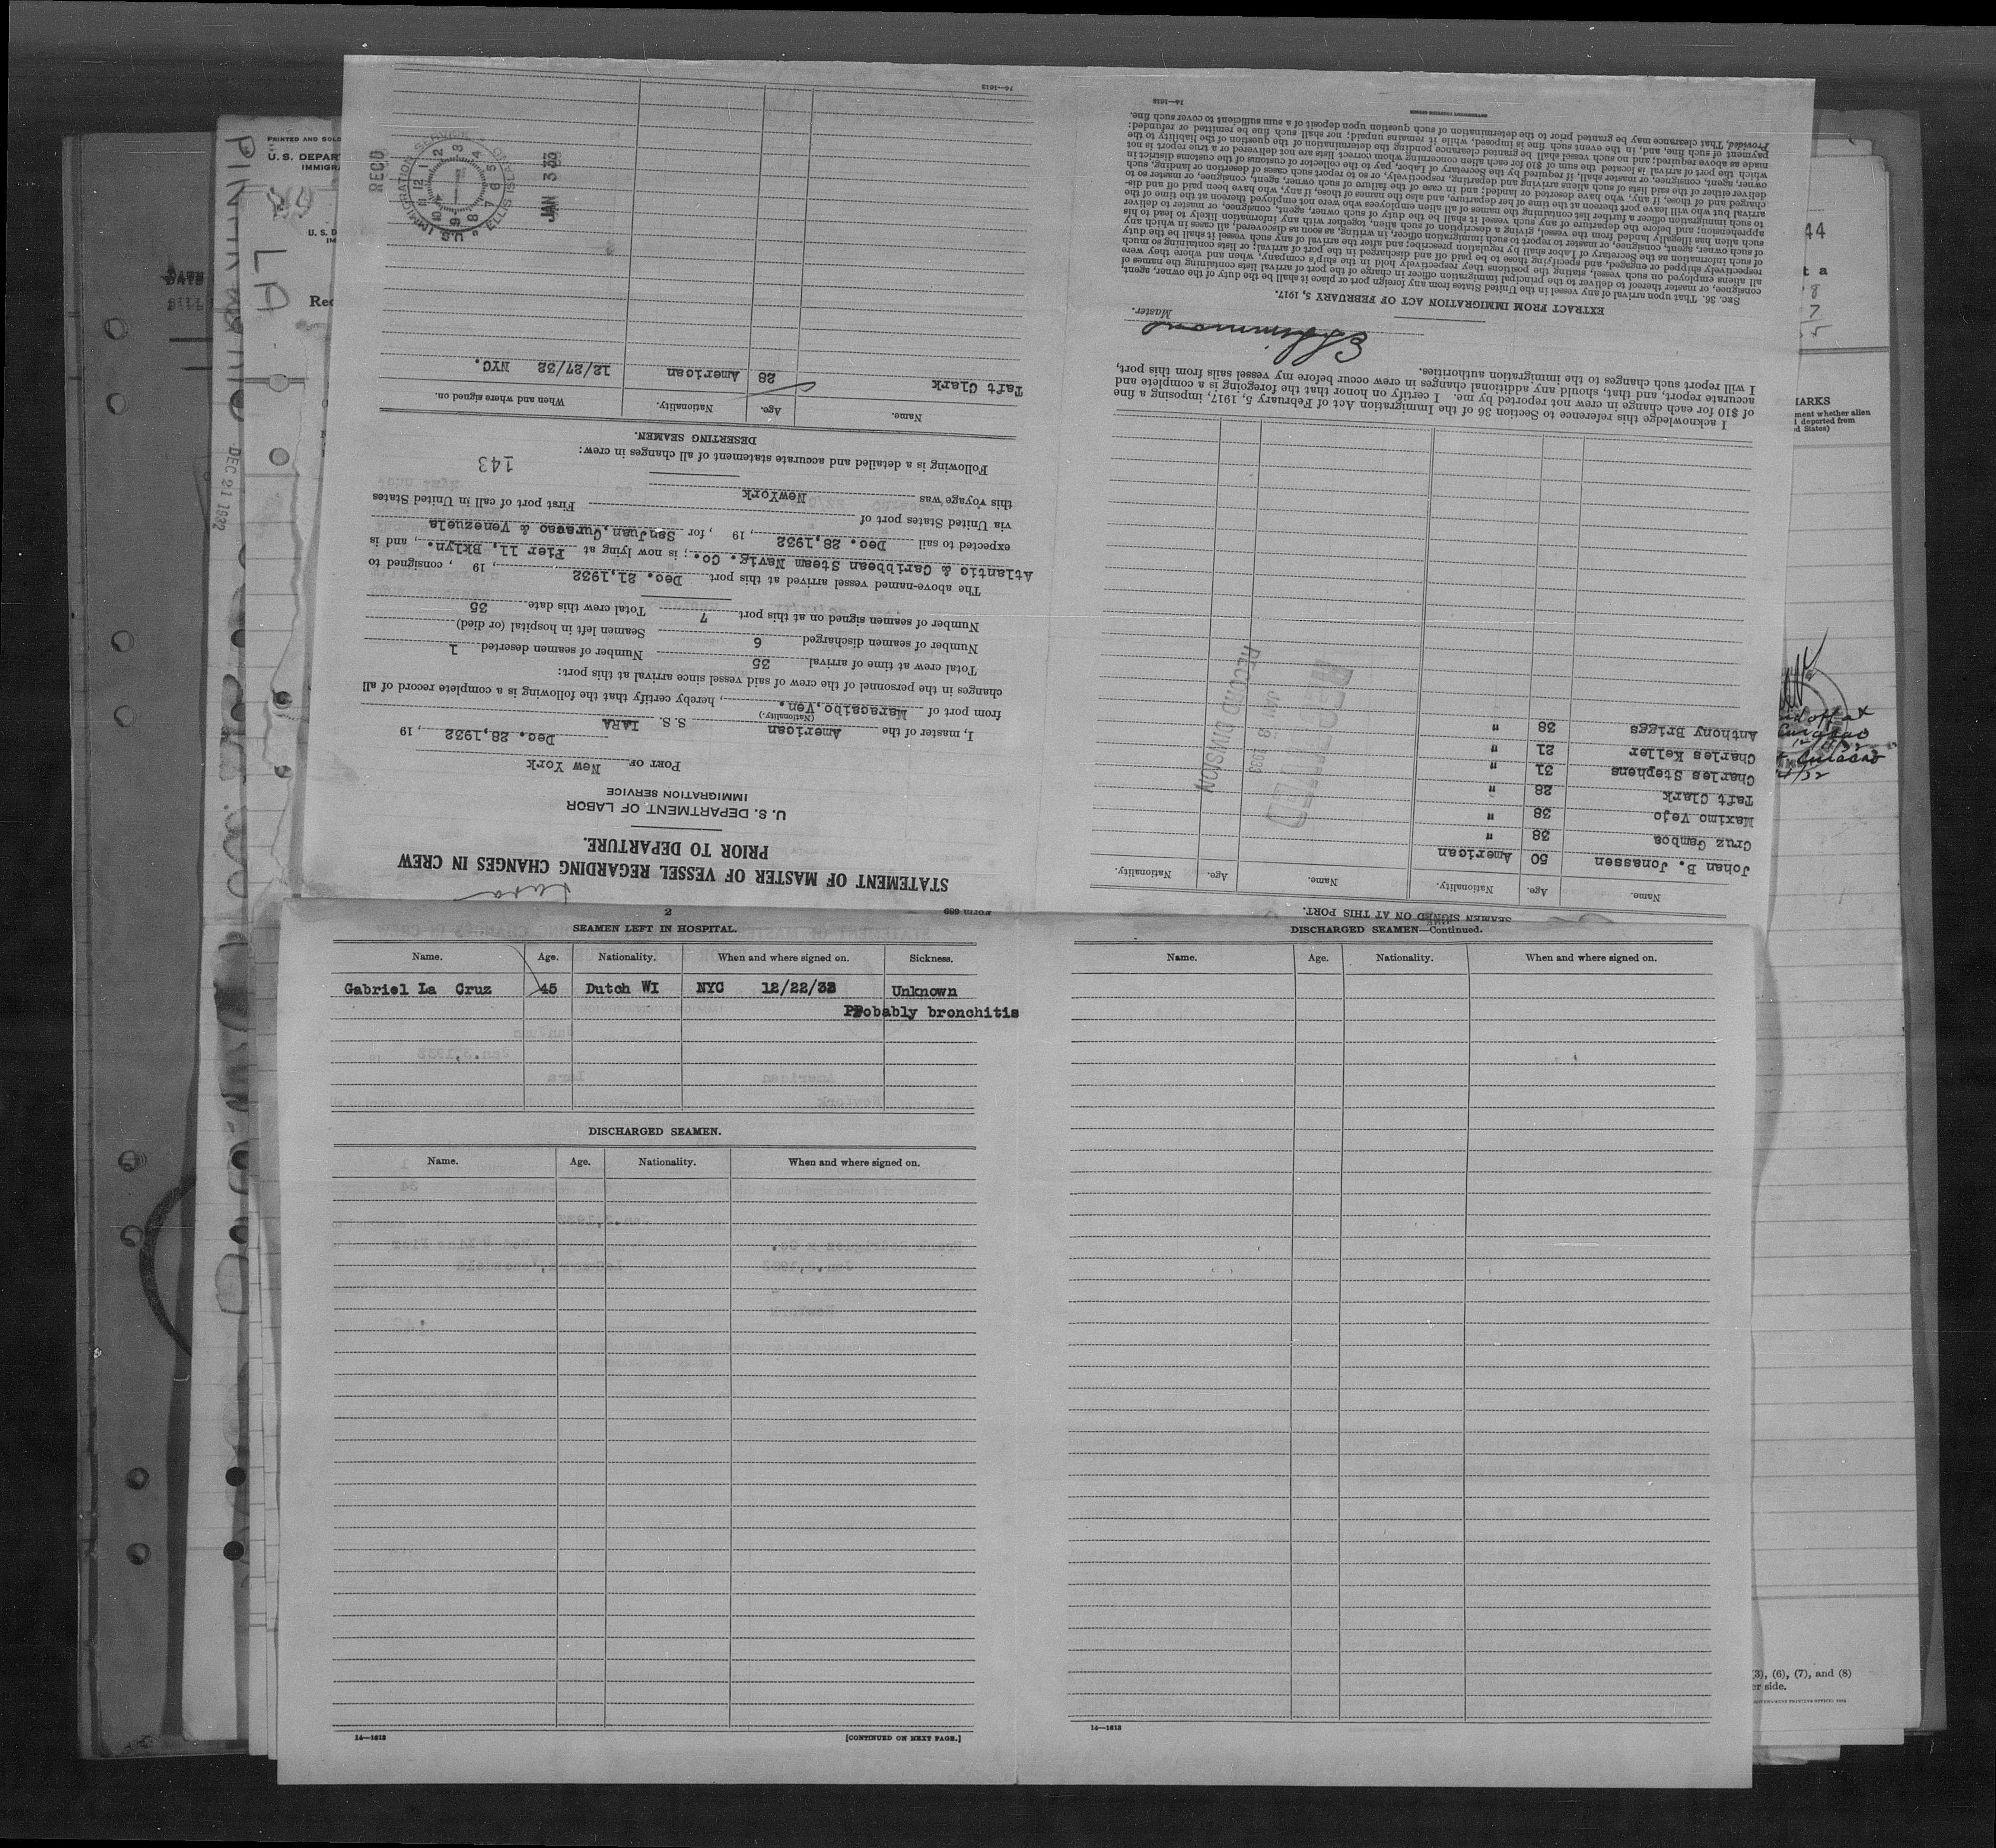 FORM 689
Lara
STATEMENT OF MASTER OF VESSEL REGARDING CHANGES IN CREW
PRIOR TO DEPARTURE.
U. S. DEPARTMENT OF LABOR
IMMIGRATION SERVICE
PORT OF New York
Dec. 28,1932, 19
I, master of the American S. S. LARA
(Nationality.)
from port of Maracaibo,Ven., hereby certify that the following is a complete record of all
changes in the personnel of the crew of said vessel since arrival at this port:
Total crew at time of arrival 35 Number of seamen deserted 1
Number of seamen discharged 6 Seamen left in hospital (or died)
Number of seamen signed on at this port 7 Total crew this date 35
The above-named vessel arrived at this port Dec. 21,1932, 19 , consigned to
Atlantic & Caribbean Steam Navig. Co.; is now lying at Pier 11, Bklyn., and is
expected to sail Dec. 28,1932, 19 , for SanJuan,Curacao & Venezuela
via United States port of First port of call in United States
this voyage was NewYork
143
Following is a detailed and accurate statement of all changes in crew:
DESERTING SEAMEN.
Name. Age. Nationality. When and where signed on.
Taft Clark 28 American 12/27/32 NYC.
RECD
U.S. IMMIGRATION SERVICE
ELLIS ISLAND
JAN 3 33
14—1613
SEAMEN SIGNED ON AT THIS PORT.
Name. Age. Nationality. Name. Age. Nationality.
Johan B. Jonassen 50 American
Cruz Gamboa 38 "
Maximo Vejo 38 "
Taft Clark 28 "
Charles Stephens 31 "
Charles Keller 21 "
Anthony Briggs 38 "
RECEIVED
JAN 3 1933
RECORD DIVISION
I acknowledge this reference to Section 36 of the Immigration Act of February 5, 1917, imposing a fine
of $10 for each change in crew not reported by me. I certify on honor that the foregoing is a complete and
accurate report, and that, should any additional changes in crew occur before my vessel sails from this port,
I will report such changes to the immigration authorities.
Master.
EXTRACT FROM IMMIGRATION ACT OF FEBRUARY 5, 1917.
SEC. 36. That upon arrival of any vessel in the United States from any foreign port or place it shall be the duty of the owner, agent,
consignee, or master thereof to deliver to the principal immigration officer in charge of the port of arrival lists containing the names of
all aliens employed on such vessel, stating the positions they respectively hold in the ship's company, when and where they were
respectively shipped or engaged, and specifying those to be paid off and discharged in the port of arrival; or lists containing so much
of such information as the Secretary of Labor shall by regulation prescribe; and after the arrival of any such vessel it shall be the duty
of such owner, agent, consignee, or master to report to such immigration officer, in writing, as soon as discovered, all cases in which any
such alien has illegally landed from the vessel, giving a description of such alien, together with any information likely to lead to his
apprehension; and before the departure of any such vessel it shall be the duty of such owner, agent, consignee, or master to deliver
to such immigration officer a further list containing the names of all alien employees who were not employed thereon at the time of the
arrival but who will leave port thereon at the time of her departure, and also the names of those, if any, who have been paid off and dis-
charged and of those, if any, who have deserted or landed; and in case of the failure of such owner, agent, consignee, or master so to
deliver either of the said lists of such aliens arriving and departing, respectively, or so to report such cases of desertion or landing, such
owner, agent, consignee, or master shall, if required by the Secretary of Labor, pay to the collector of customs of the customs district in
which the port of arrival is located the sum of $10 for each alien concerning whom correct lists are not delivered or a true report is not
made as above required; and no such vessel shall be granted clearance pending the determination of the question of the liability to the
payment of such fine, and, in the event such fine is imposed, while it remains unpaid; nor shall such fine be remitted or refunded:
Provided, That clearance may be granted prior to the determination of such question upon deposit of a sum sufficient to cover such fine.
14—1613
2
SEAMEN LEFT IN HOSPITAL.
Name. Age. Nationality. When and where signed on. Sickness.
Gabriel La Cruz 45 Dutch WI NYC 12/22/32 Unknown
Probably bronchitis
DISCHARGED SEAMEN.
Name. Age. Nationality. When and where signed on.
14—1613
[CONTINUED ON NEXT PAGE.]
DISCHARGED SEAMEN—Continued.
Name. Age. Nationality. When and where signed on.
14—1613
PRINTED AND SOLD
U. S. DEPAR
IMMIGRA
DEC 21 1932
LA
44
MARKS
(3), (6), (7), and (8)
er side.